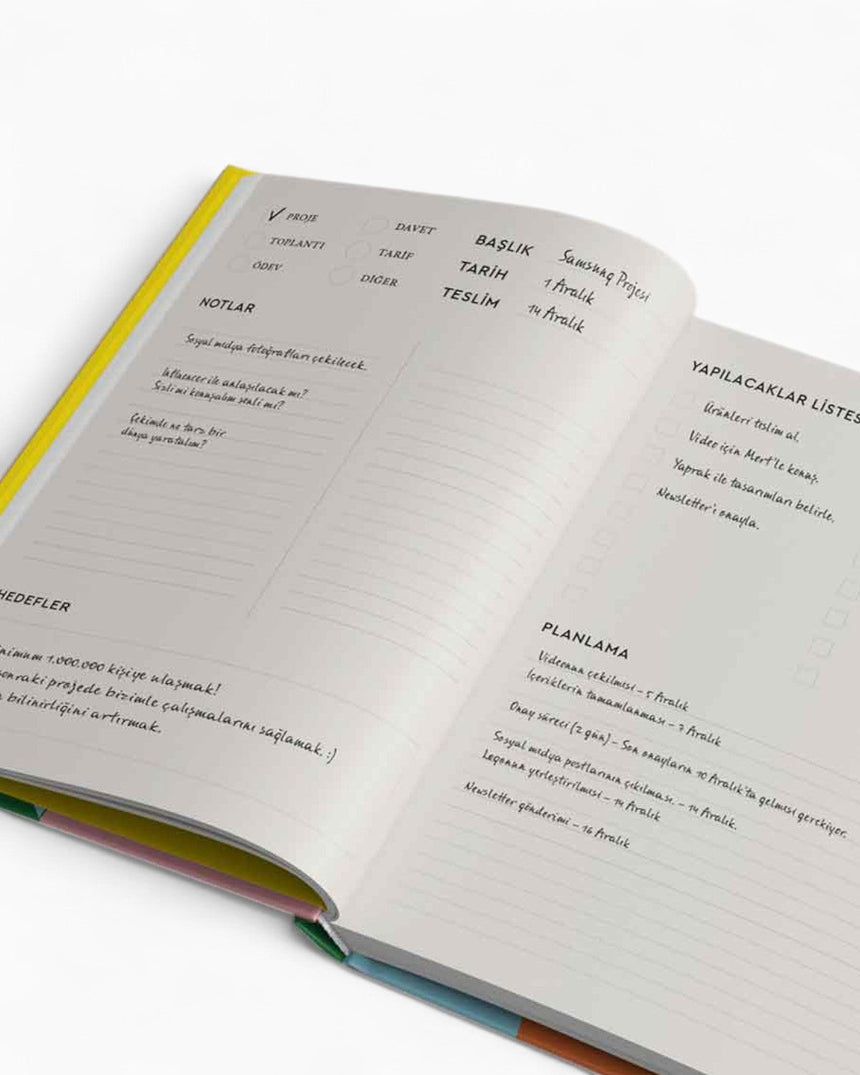 PROJE
DAVET
TOPLANTI
TARİF
ÖDEV
DİĞER
BAŞLIK Samsung Projesi
TARİH 1 Aralık
TESLİM 14 Aralık
NOTLAR
Sosyal medya fotoğrafları çekilecek.
Influencer ile anlaşılacak mı?
Sizli mi konuşalım senli mi?
Çekimde ne tarz bir
dünya yaratalım?
HEDEFLER
1.000.000 kişiye ulaşmak!
sonraki projede bizimle çalışmalarını sağlamak. :)
bilinirliğini artırmak.
YAPILACAKLAR
Ürünleri teslim al.
Video için Mert'le konuş.
Yaprak ile tasarımları belirle.
Newsletter'ı onayla.
PLANLAMA
Videonun çekilmesi – 5 Aralık
İçeriklerin tamamlanması – 7 Aralık
Onay süreci (2 gün) – Son onayların 10 Aralık'ta gelmesi gerekiyor.
Sosyal medya postlarının çıkılması. – 14 Aralık.
Logonun yerleştirilmesi – 14 Aralık
Newsletter gönderimi – 16 Aralık